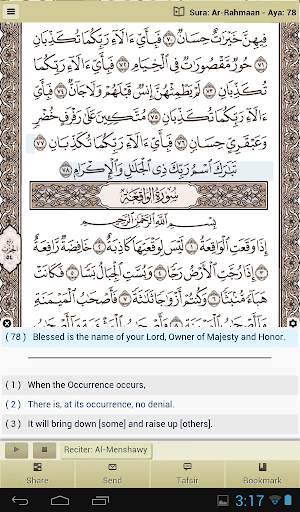 Sura: Ar-Rahmaan - Aya: 78
فِيهِنَّ خَيْرَٰتٌ حِسَانٌ ٧٠ فَبِأَيِّ ءَالَآءِ رَبِّكُمَا تُكَذِّبَانِ
٧١ حُورٌ مَّقْصُورَٰتٌ فِى ٱلْخِيَامِ ٧٢ فَبِأَيِّ ءَالَآءِ رَبِّكُمَا
تُكَذِّبَانِ ٧٣ لَمْ يَطْمِثْهُنَّ إِنسٌ قَبْلَهُمْ وَلَا جَآنٌّ ٧٤ فَبِأَيِّ
ءَالَآءِ رَبِّكُمَا تُكَذِّبَانِ ٧٥ مُتَّكِـِٔينَ عَلَىٰ رَفْرَفٍ خُضْرٍ
وَعَبْقَرِىٍّ حِسَانٍ ٧٦ فَبِأَيِّ ءَالَآءِ رَبِّكُمَا تُكَذِّبَانِ ٧٧
تَبَٰرَكَ ٱسْمُ رَبِّكَ ذِى ٱلْجَلَٰلِ وَٱلْإِكْرَامِ ٧٨
سُورَةُ الوَاقِعَةِ
بِسْمِ ٱللَّهِ ٱلرَّحْمَٰنِ ٱلرَّحِيمِ
إِذَا وَقَعَتِ ٱلْوَاقِعَةُ ١ لَيْسَ لِوَقْعَتِهَا كَاذِبَةٌ ٢ خَافِضَةٌ رَّافِعَةٌ
٣ إِذَا رُجَّتِ ٱلْأَرْضُ رَجًّا ٤ وَبُسَّتِ ٱلْجِبَالُ بَسًّا ٥ فَكَانَتْ
هَبَآءً مُّنۢبَثًّا ٦ وَكُنتُمْ أَزْوَٰجًا ثَلَٰثَةً ٧ فَأَصْحَٰبُ ٱلْمَيْمَنَةِ
( 78 ) Blessed is the name of your Lord, Owner of Majesty and Honor.
( 1 ) When the Occurrence occurs,
( 2 ) There is, at its occurrence, no denial.
( 3 ) It will bring down [some] and raise up [others].
Reciter: Al-Menshawy
Share Send Tafsir Bookmark
3:17